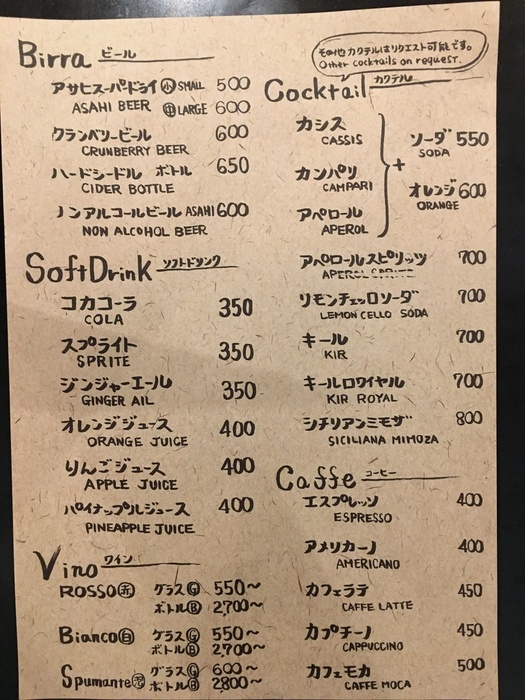 Birra ビール
アサヒスーパードライ ㊙小 SMALL 500
ASAHI BEER 中 LARGE 600
クランベリービール 600
CRUNBERRY BEER
ハードシードル ボトル 650
CIDER BOTTLE
ノンアルコールビール ASAHI 600
NON ALCOHOL BEER
SoftDrink ソフトドリンク
コカコーラ 350
COLA
スプライト 350
SPRITE
ジンジャーエール 350
GINGER AIL
オレンジジュース 400
ORANGE JUICE
りんごジュース 400
APPLE JUICE
パイナップルジュース 400
PINEAPPLE JUICE
Vino ワイン
ROSSO赤 グラスⒼ 550〜
ボトルⒷ 2,700〜
Bianco白 グラスⒼ 550〜
ボトルⒷ 2,700〜
Spumante泡 グラスⒼ 600〜
ボトルⒷ 2800〜
その他カクテルはリクエスト可能です。
Other cocktails on request.
Cocktail カクテル
カシス
CASSIS
カンパリ
CAMPARI
アペロール
APEROL
+
ソーダ 550
SODA
オレンジ 600
ORANGE
アペロールスピリッツ 700
APEROL SPRITZ
リモンチェッロソーダ 700
LEMON CELLO SODA
キール 700
KIR
キールロワイヤル 700
KIR ROYAL
シチリアンミモザ 800
SICILIANA MIMOZA
Caffe コーヒー
エスプレッソ 400
ESPRESSO
アメリカーノ 400
AMERICANO
カフェラテ 450
CAFFE LATTE
カプチーノ 450
CAPPUCCINO
カフェモカ 500
CAFFE MOCA